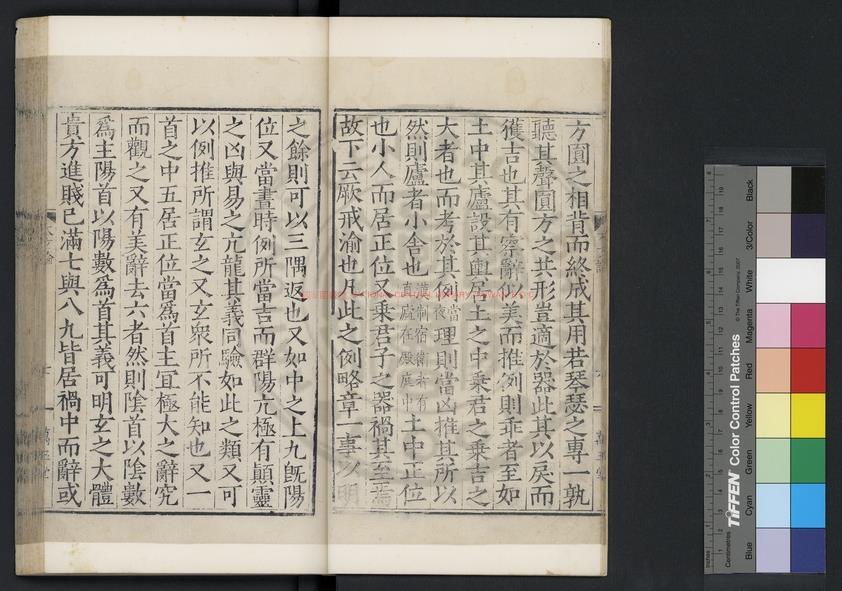 方圓之相背而終成其用若琴瑟之專一孰
聽其聲圓方之共形豈適於器此其以戾而
獲吉也其有察辭似美而推例則乖者至如
土中其廬設其輿居土之中乘君之乘吉之
大者也而考於其例當夜理則當凶推其所以
然則廬者小舍也漢制宿衛者有直廬在殿庭中土中正位
也小人而居正位又乘君子之器禍其至焉
故下云厥戒渝也凡此之例略章一事以明
之餘則可以三隅返也又如中之上九旣陽
位又當晝時例所當吉而群陽亢極有顚靈
之凶與易之亢龍其義同驗如此之類又可
以例推所謂玄之又玄衆所不能知也又一
首之中五居正位當爲首主宜極大之辭究
而觀之又有美辭去六者然則陰首以陰數
爲主陽首以陽數爲首其義可明玄之大體
貴方進賤已滿七與八九皆居禍中而辭或
萬玉堂
TIFFEN Color Control Patches
© The Tiffen Company, 2007
Blue
Cyan
Green
Yellow
Red
Magenta
White
3/Color
Black
Inches
Centimetres